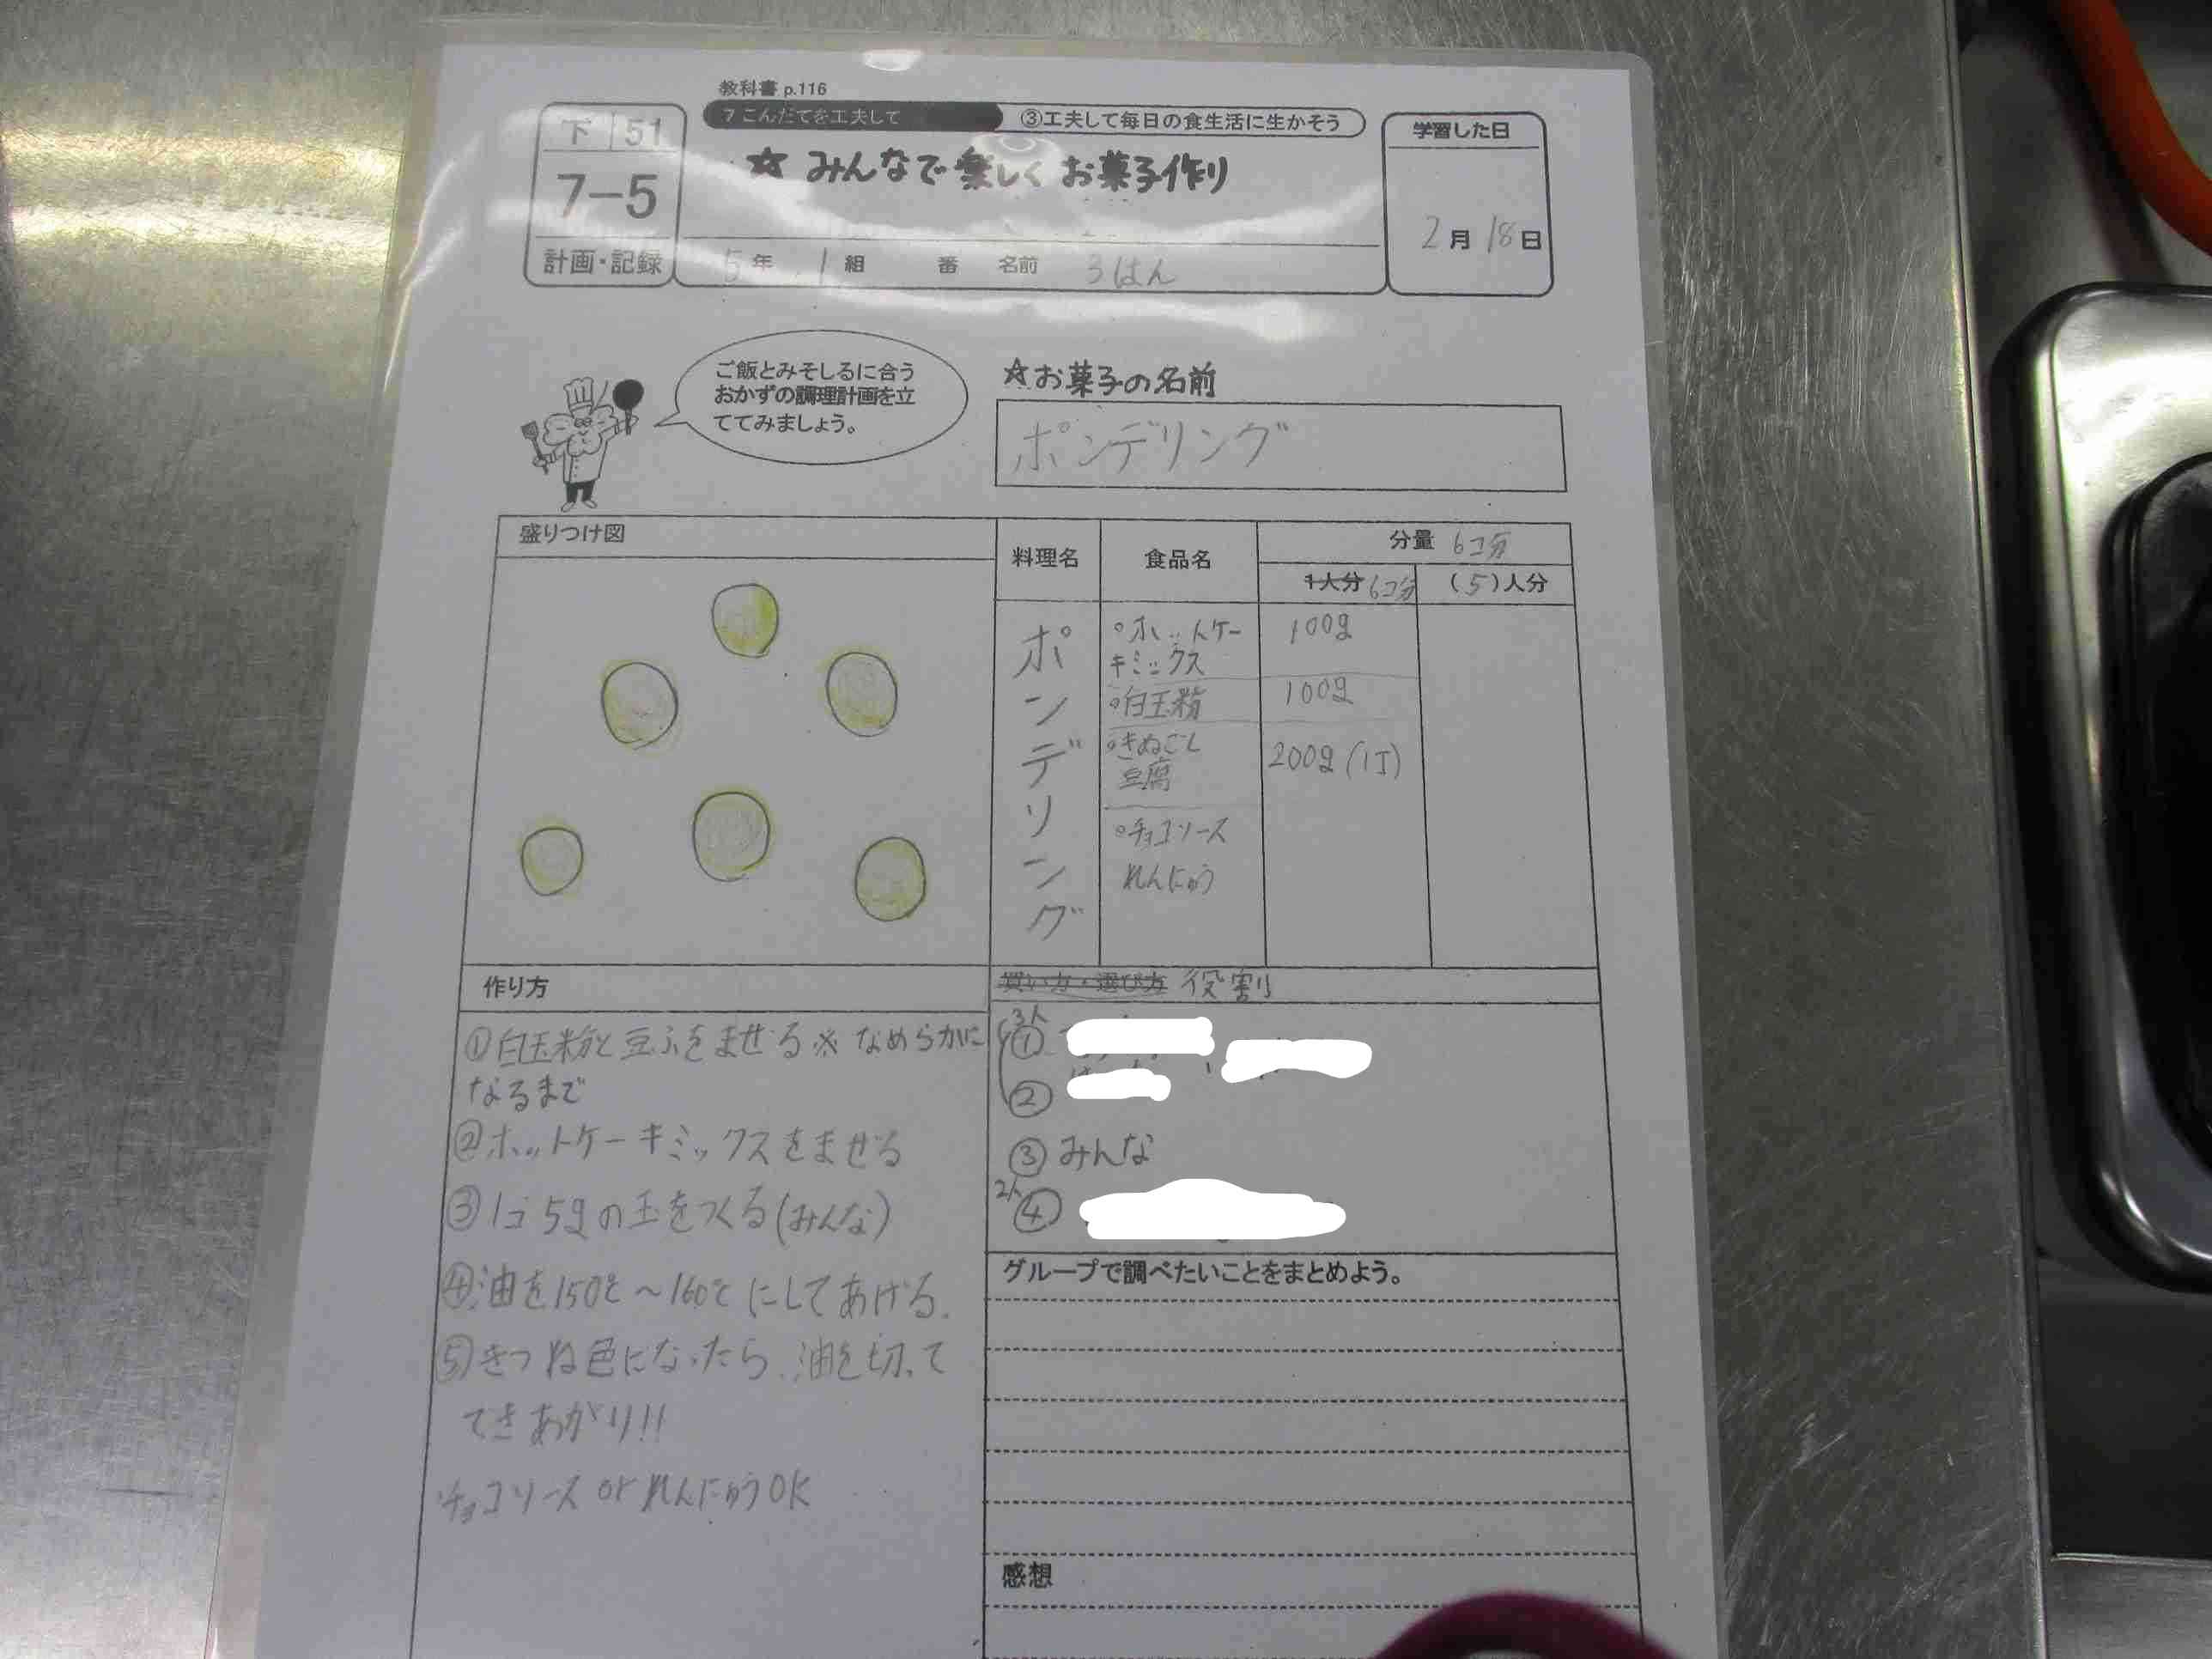 教科書 p.116
7 こんだてを工夫して
③工夫して毎日の食生活に生かそう
下 51
7-5
計画・記録
☆ みんなで楽しく お菓子作り
5年 1組 番 名前 3はん
学習した日
2月18日
ご飯とみそしるに合う
おかずの調理計画を立
ててみましょう。
☆お菓子の名前
ポンデリング
盛りつけ図
料理名
食品名
分量 6コ分
1人分 6コ分
(5)人分
ポンデリング
・ホットケー
キミックス
100g
・白玉粉
100g
・きぬごし
豆腐
200g(1丁)
・チョコソース
れんにゅう
作り方
①白玉粉と豆ふをまぜる※なめらかに
なるまで
②ホットケーキミックスをまぜる
③1コ5gの玉をつくる(みんな)
④油を150℃～160℃にしてあげる.
⑤きつね色になったら、油を切って
できあがり!!
チョコソース or れんにゅうOK
買い方・選び方 役割
3人
①
②
③みんな
2人
④
グループで調べたいことをまとめよう。
感想